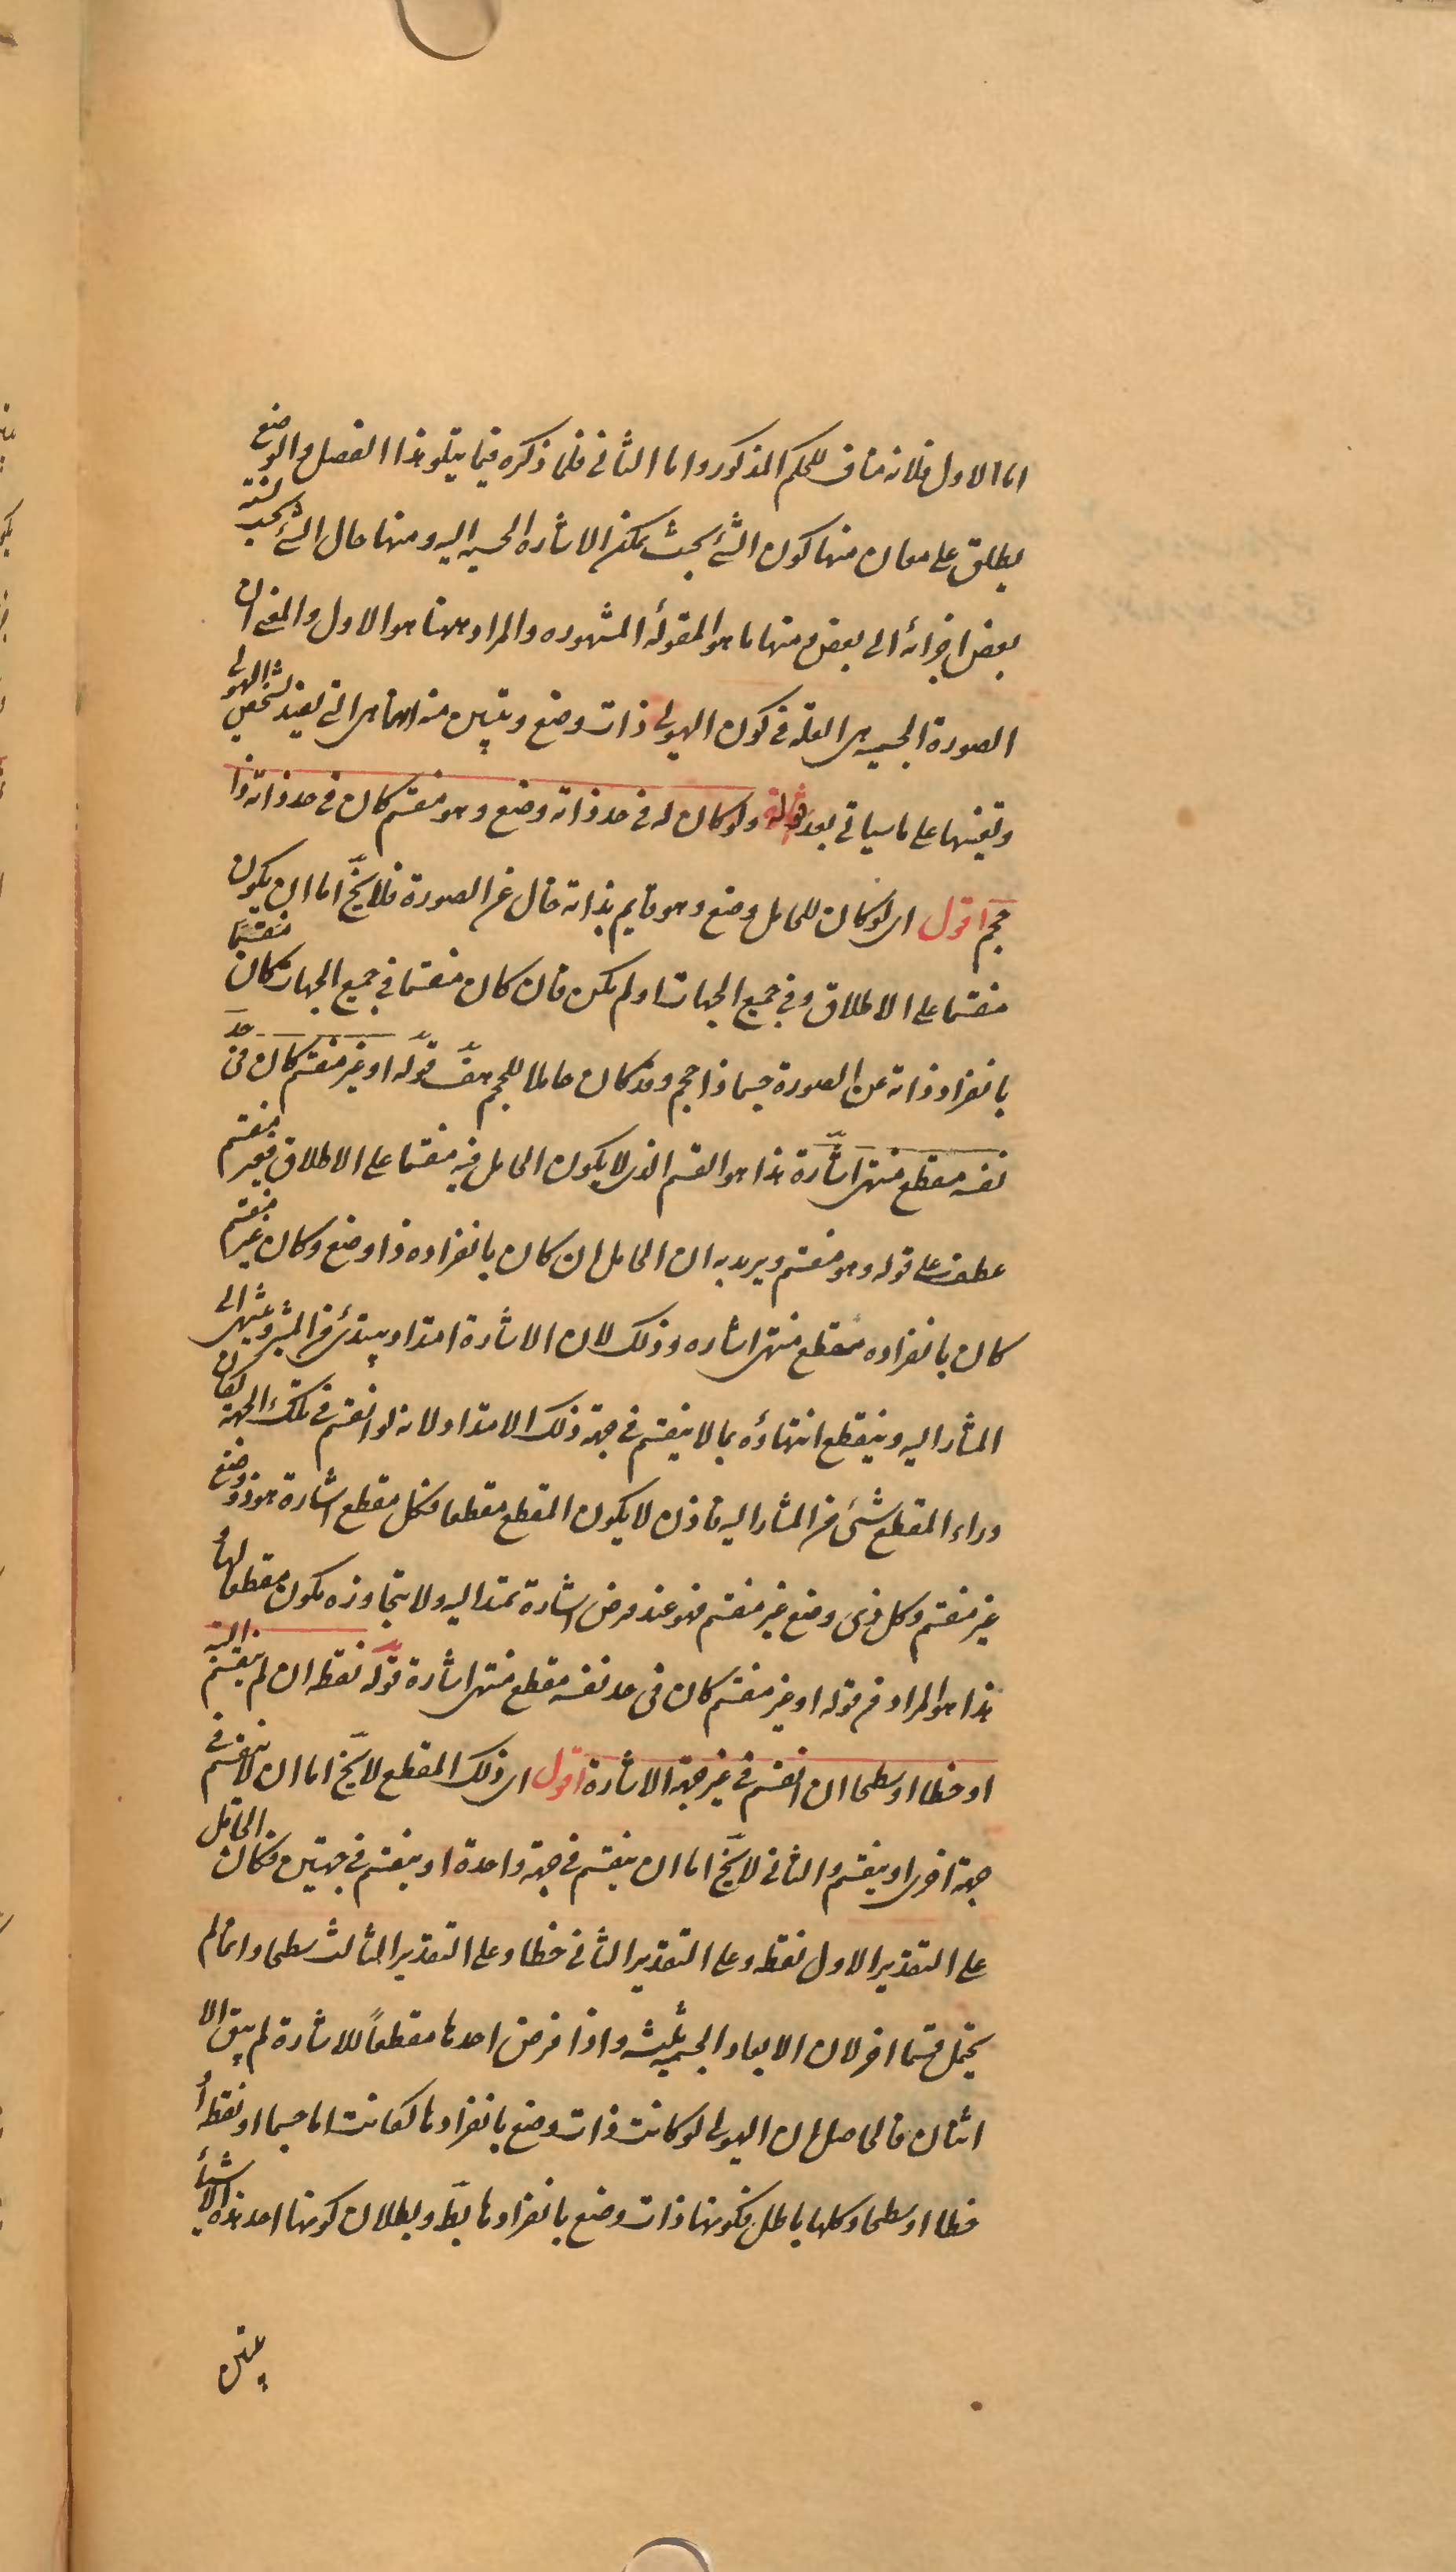 اما الاول فلانه مناف للحكم المذكور واما الثانى فلما ذكره فيما يتلو هذا الفصل والوضع
يطلق على معان منها كون الشئ بحيث يمكن الاشاره الحسيه اليه ومنها حال الشئ بحسب نسبة
بعض اجزائه الى بعض ومنها ما هو المقولة المشهوره والمراد ههنا هو الاول والمعنى ان
الصورة الجسميه هى العلة فى كون الهيولى ذات وضع ويتبين منه انها هى التى تفيد تشخص الهيولى
وتعينها على ما سياتى بعد قوله ولو كان له فى حد ذاته وضع وهو منقسم كان فى حد ذاته ذا
حجم اقول اى لو كان للحامل وضع وهو قايم بذاته خال عن الصورة فلا يخ اما ان يكون
منقسما على الاطلاق وفى جميع الجهات او لم يكن فان كان منقسما فى جميع الجهات كان منقسما
بانفراد ذاته عن الصورة جسما ذا حجم وقد كان حاملا للحجم هف قوله او غير منقسم كان فى حد
نفسه مقطع منتهى اشارة هذا هو القسم الذى لا يكون الحامل فيه منقسما على الاطلاق فغير منقسم
عطف على قوله وهو منقسم ويريد به ان الحامل ان كان بانفراده ذا وضع وكان غير منقسم
كان بانفراده مقطع منتهى اشاره وذلك لان الاشارة امتداد يبتدئ من المشير وينتهى الى
المشار اليه وينقطع انتهاؤه بما لا ينقسم فى جهة ذلك الامتداد لانه لو انقسم فى تلك الجهة لكان
وراء المقطع شئ من المشار اليه فاذن لا يكون المقطع مقطعا فكل مقطع اشارة هو ذو وضع
غير منقسم وكل ذى وضع غير منقسم فهو عند فرض اشارة تمتد اليه ولا تتجاوزه يكون مقطعا لها
هذا هو المراد من قوله او غير منقسم كان فى حد نفسه مقطع منتهى اشارة قوله نقطه ان لم ينقسم البتة
او خطا او سطحا ان انقسم فى غير جهة الاشارة اقول اى ذلك المقطع لا يخ اما ان لا ينقسم فى
جهة اخرى او ينقسم والثانى لا يخ اما ان ينقسم فى جهة واحدة او ينقسم فى جهتين فكان الحامل
على التقدير الاول نقطه وعلى التقدير الثانى خطا وعلى التقدير الثالث سطحا وانما لم
يحتمل قسما اخر لان الابعاد الجسميه ثلثه واذا فرض احدها مقطعاً للاشارة لم يبق الا
اثنان فالحاصل ان الهيولى لو كانت ذات وضع بانفرادها لكانت اما جسما او نقطه او
خطا او سطحا وكلها باطل فكونها ذات وضع بانفرادها بط وبطلان كونها احد هذه الاشياء